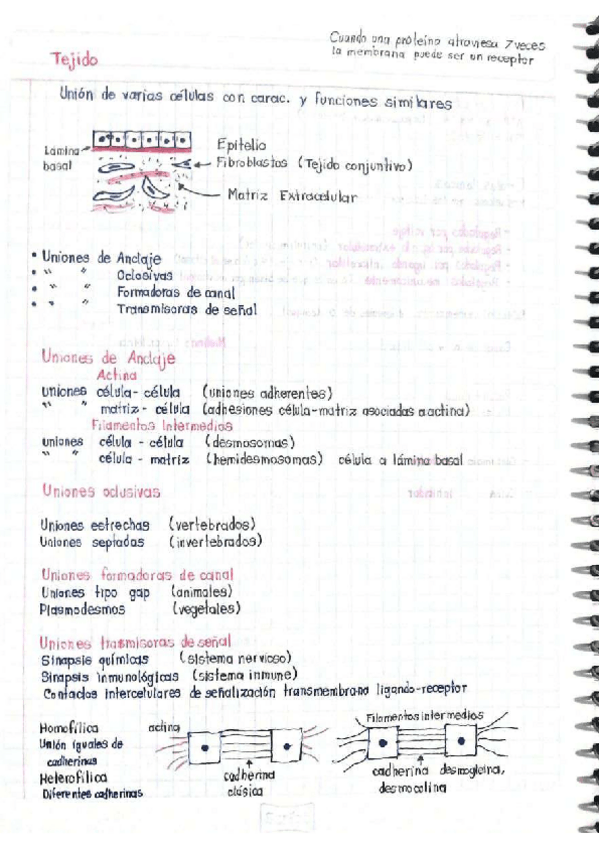 Cuando una proteína atraviesa 7 veces
la membrana puede ser un receptor
Tejido
Unión de varias células con carac. y funciones similares
Lámina basal
Epitelio
Fibroblastos (Tejido conjuntivo)
Matriz Extracelular
• Uniones de Anclaje
• " " Oclusivas
• " " Formadoras de canal
• " " Transmisoras de señal
Uniones de Anclaje
Actina
uniones célula - célula (uniones adherentes)
" " matriz - célula (adhesiones célula-matriz asociadas a actina)
Filamentos Intermedios
uniones célula - célula (desmosomas)
" " célula - matriz (hemidesmosomas) célula a lámina basal
Uniones oclusivas
Uniones estrechas (vertebrados)
Uniones septadas (invertebrados)
Uniones formadoras de canal
Uniones tipo gap (animales)
Plasmodesmos (vegetales)
Uniones trasmisoras de señal
Sinapsis químicas (sistema nervioso)
Sinapsis inmunológicas (sistema inmune)
Contactos intercelulares de señalización transmembrana ligando-receptor
Homofílica
Unión iguales de
cadherinas
Heterofílica
Diferentes cadherinas
actina
cadherina
clásica
Filamentos intermedios
cadherina desmogleina,
desmocolina